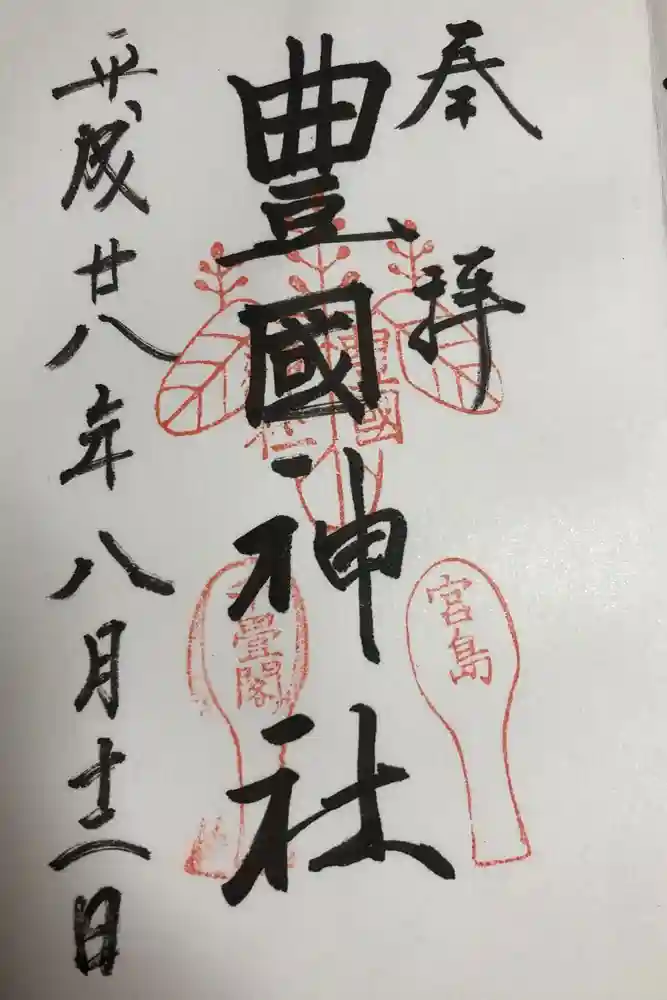 奉拝
豊國神社
平成廿八年八月十二日
豊國
神社
宮島
千畳閣